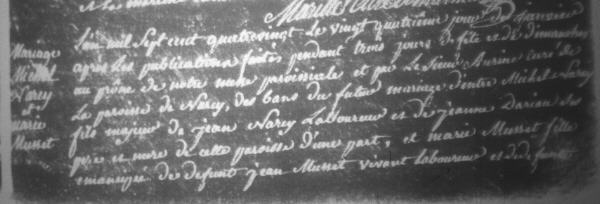 L'an mil Sept cent quatrevingt Le vingt quatrieme jour de Janvier
Mariage après Les publications faites pendant trois jours de fête et de dimanches
Michel au prône de notre messe paroissiale et par Le Sieur curé de
Narcy La paroisse de Narcy, des bans du futur mariage d'entre Michel Narcy
et fils majeur de jean Narcy Laboureur et de jeanne Darian ses
marie père et mere de cette paroisse d'une part, et marie Musset fille
Musset emancipée de defunt jean Musset vivant laboureur et de defunte